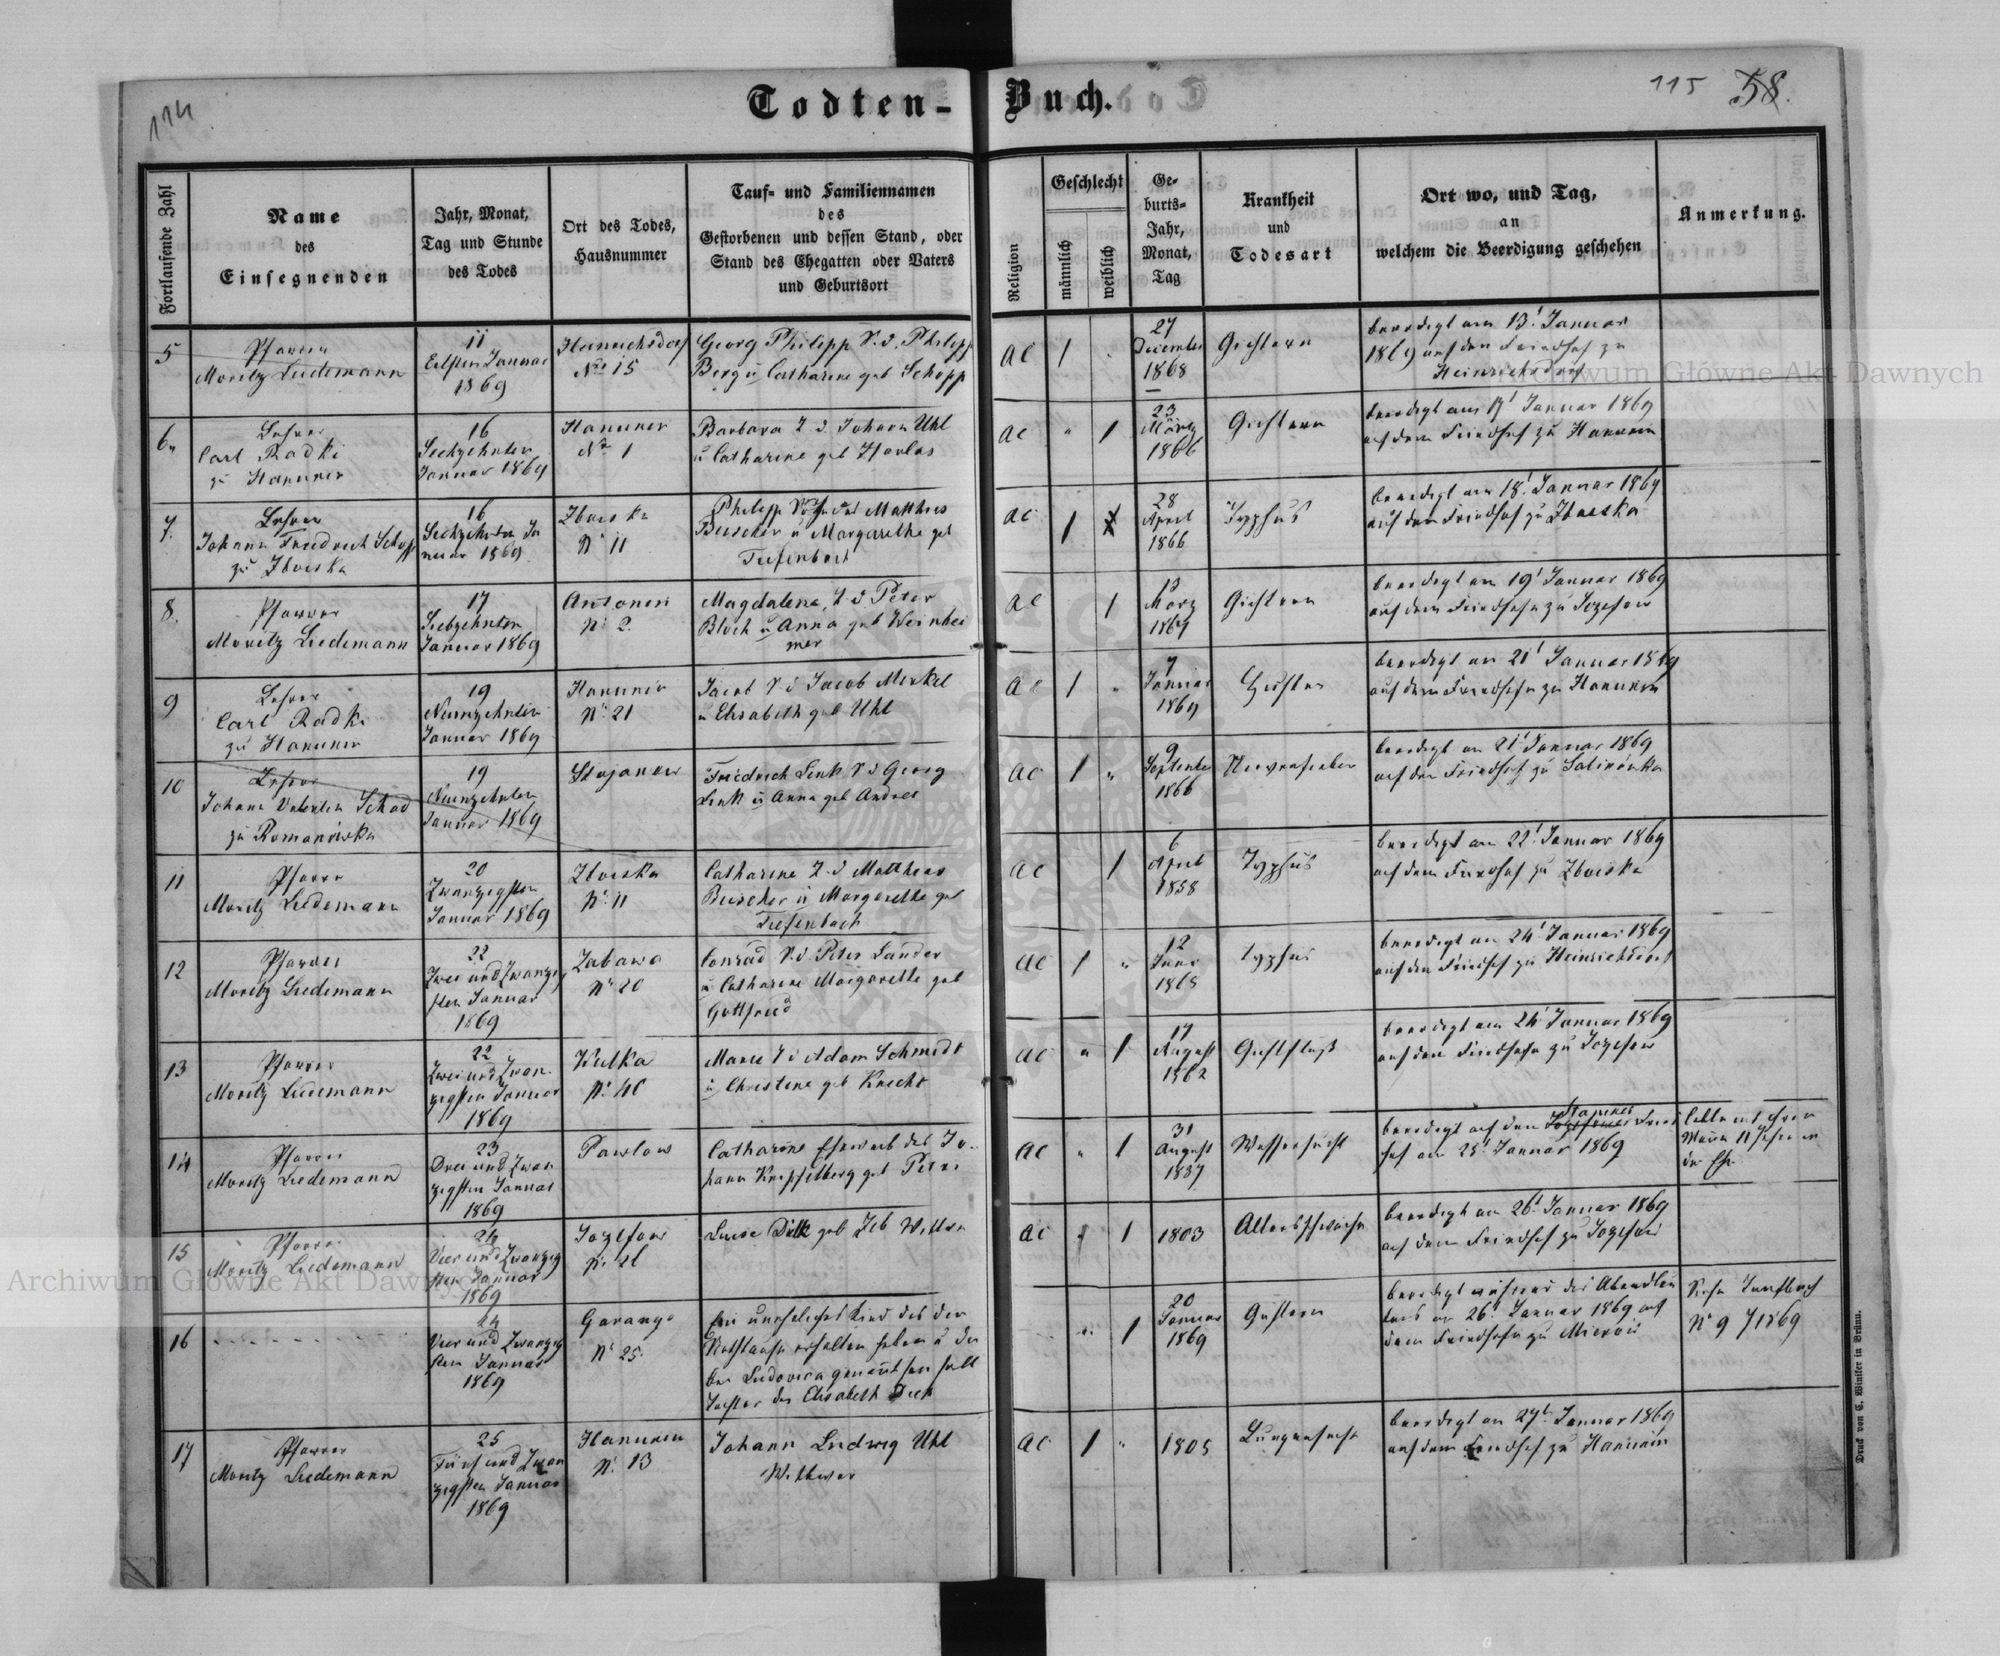 114
Todten-Buch.
115 58.
Fortlaufende Zahl
Name
des
Einsegnenden
Jahr, Monat,
Tag und Stunde
des Todes
Ort des Todes,
Hausnummer
Tauf- und Familiennamen
des
Gestorbenen und dessen Stand, oder
Stand des Ehegatten oder Vaters
und Geburtsort
Religion
Geschlecht
männlich
weiblich
Ge-
burts-
Jahr,
Monat,
Tag
Krankheit
und
Todesart
Ort wo, und Tag,
an
welchem die Beerdigung geschehen
Anmerkung.
5
Pfarrer
Moritz Liedemann
11
Elften Januar
1869
Heinrichsdorf
Nro 15
Georg Philipp S. d. Philipp
Berg u Catharine geb Schopp
AC
1
27
December
1868
beerdigt am 13t Januar
1869 auf den Friedhof zu
Heinrichsdorf
6
Lehrer
Carl Radki
zu Hanunin
16
Sechzehnten
Januar 1869
Hanunin
No 1
Barbara T d Johann Uhl
u Catharine geb Havlas
AC
1
23
März
1866
beerdigt am Januar 1869
auf dem Friedhof zu Hanunin
7.
Lehrer
Johann Friedrich Schopp
zu Zboiska
16
Sechzehnten Ja
nuar 1869
Zboiska
No 11
Philipp Sohn des Matthias
Buscher u Margarethe geb
Tiefenbach
AC
1
28
April
1866
Typhus
beerdigt am 18t Januar 1869
auf dem Friedhof zu Zboiska
8.
Pfarrer
Moritz Liedemann
17
Siebzehnten
Januar 1869
Antonin
No 2.
Magdalena, T d Peter
Bloch u Anna geb Weinhei
mer
AC
1
13
März
1869
beerdigt am 19t Januar 1869
auf dem Friedhofe zu Jozefow
9
Lehrer
Carl Radki
zu Hanunin
19
Neunzehnten
Januar 1869
Hanunin
No 21
Jacob S d Jacob Merkel
u Elisabeth geb Uhl
AC
1
7
Januar
1869
beerdigt am 21t Januar 1869
auf dem Friedhofe zu Hanunin
10
Lehrer
Johann Valentin Schad
zu Romanówka
19
Neunzehnten
Januar 1869
Stojanow
Friedrich Link S d Georg
Link u Anna geb Andres
AC
1
9
September
1866
Nervenfieber
beerdigt am 21t Januar 1869
auf dem Friedhof zu
11
Pfarrer
Moritz Liedemann
20
Zwanzigsten
Januar 1869
Zboiska
No 11
Catharine T d Matthias
Buscher u Margarethe geb
Tiefenbach
AC
1
6
April
1858
Typhus
beerdigt am 22t Januar 1869
auf dem Friedhof zu Zboiska
12
Pfarrer
Moritz Liedemann
22
Zwei und Zwanzig
sten Januar
1869
Zabawa
No 20
Conrad S. d Peter Lander
u Catharine Margarethe geb
Gottfried
AC
1
12
1865
Typhus
beerdigt am 24t Januar 1869
auf den Friedhof zu Heinrichsdorf
13
Pfarrer
Moritz Liedemann
22
Zwei und Zwan
zigsten Januar
1869
Kulka
No 40
Marie T d Adam Schmidt
u Christine geb Knecht
AC
1
17
August
1862
beerdigt am 24t Januar 1869
auf dem Friedhofe zu Jozefow
14
Pfarrer
Moritz Liedemann
23
Drei und Zwan
zigsten Januar
1869
Pawlow
Catharine Eheweib des Jo-
hann geb Peter
AC
1
31
August
1837
Wassersucht
beerdigt auf den Fried
hof am 25t Januar 1869
lebte mit ihrem
Mann 11 Jahre in
der Ehe
15
Pfarrer
Moritz Liedemann
24
Vier und Zwanzig
sten Januar
1869
Jozefow
Luise Dilk geb Zeb Wittwe
AC
1
1803
Altersschwäche
beerdigt am 26t Januar 1869
auf dem Friedhof zu Jozefow
16
24
Vier und Zwanzig
sten Januar
1869
No 25.
Ein uneheliches Kind das die
Nothtaufe erhalten haben u da
bei Ludovica genannt sein soll
Tochter der Elisabeth Diek
1
20
Januar
1869
beerdigt während des
am 26t Januar 1869 auf
dem Friedhofe zu Mierow
Siehe Taufbuch
No 9 / 1869
17
Pfarrer
Moritz Liedemann
25
Fünf und Zwan
zigsten Januar
1869
Hanunin
No 13
Johann Ludwig Uhl
Wittwer
AC
1
1805
Lungensucht
beerdigt am 27t Januar 1869
auf dem Friedhof zu Hanunin
Druck von C. Winiker in Brünn.
Archiwum Główne Akt Dawnych
Archiwum Główne Akt Dawnych